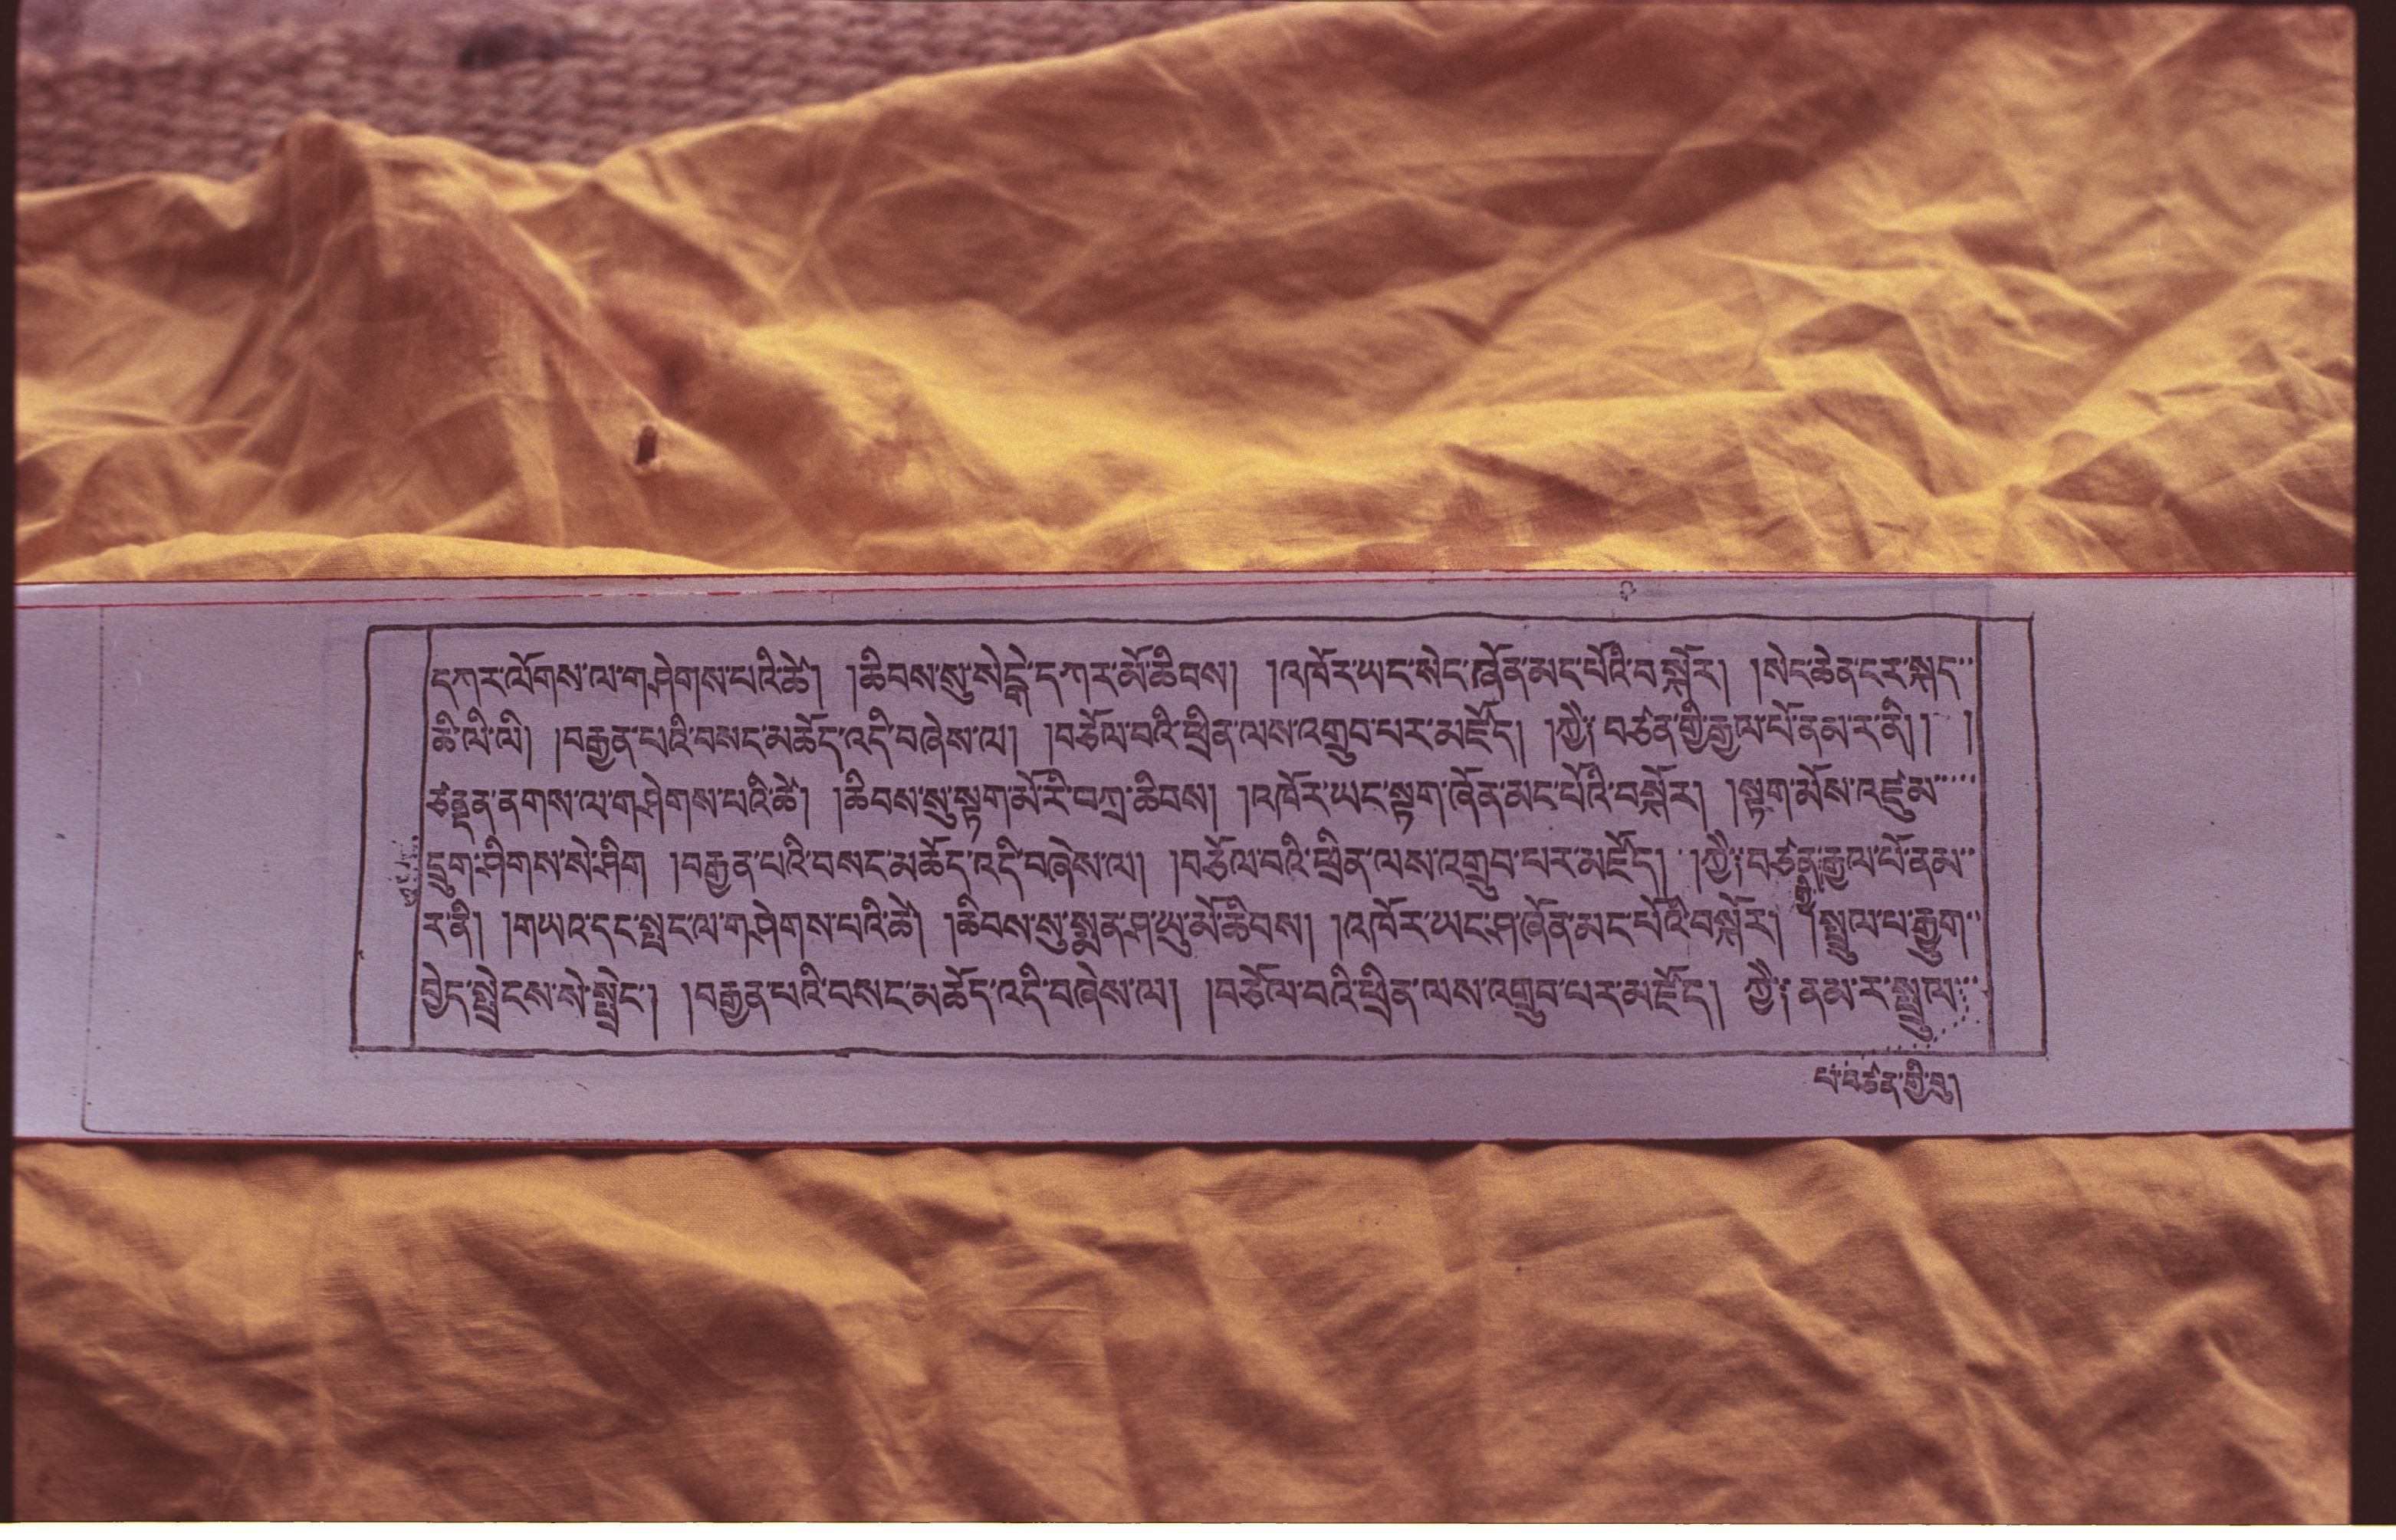 དཀར་ལོགས་ལ་གཤེགས་པའི་ཚེ། །ཆིབས་སུ་སེངྒེ་དཀར་མོ་ཆིབས། །འཁོར་ཡང་སེང་ཞོན་མང་པོའི་བསྐོར། །སེང་ཆེན་ངར་སྐད་
ཆི་ལི་ལི། །བརྒྱན་པའི་བསང་མཆོད་འདི་བཞེས་ལ། །བཅོལ་བའི་ཕྲིན་ལས་འགྲུབ་པར་མཛོད། །ཀྱཻ༔ བཙན་གྱི་རྒྱལ་པོ་ནམ་ར་ནི། །
ཙནྡན་ནགས་ལ་གཤེགས་པའི་ཚེ། །ཆིབས་སུ་སྟག་མོ་རི་བཀྲ་ཆིབས། །འཁོར་ཡང་སྟག་ཞོན་མང་པོའི་བསྐོར། །སྟག་མོས་འཛུམ་
དྲུག་ཤིགས་སེ་ཤིག །བརྒྱན་པའི་བསང་མཆོད་འདི་བཞེས་ལ། །བཅོལ་བའི་ཕྲིན་ལས་འགྲུབ་པར་མཛོད། །ཀྱཻ༔ བཙན་གྱི་རྒྱལ་པོ་ནམ་
ར་ནི། །གཡའ་དང་སྤང་ལ་གཤེགས་པའི་ཚེ། །ཆིབས་སུ་སྨན་ཤ་ཡུ་མོ་ཆིབས། །འཁོར་ཡང་ཤ་ཞོན་མང་པོའི་བསྐོར། །སྤྲུལ་པ་རྒྱུག་
བྱེད་སྤྲེངས་སེ་སྤྲེང་། །བརྒྱན་པའི་བསང་མཆོད་འདི་བཞེས་ལ། །བཅོལ་བའི་ཕྲིན་ལས་འགྲུབ་པར་མཛོད། ཀྱཻ༔ ནམ་ར་སྤྲུལ་
པ་བཙན་གྱི་བུ།